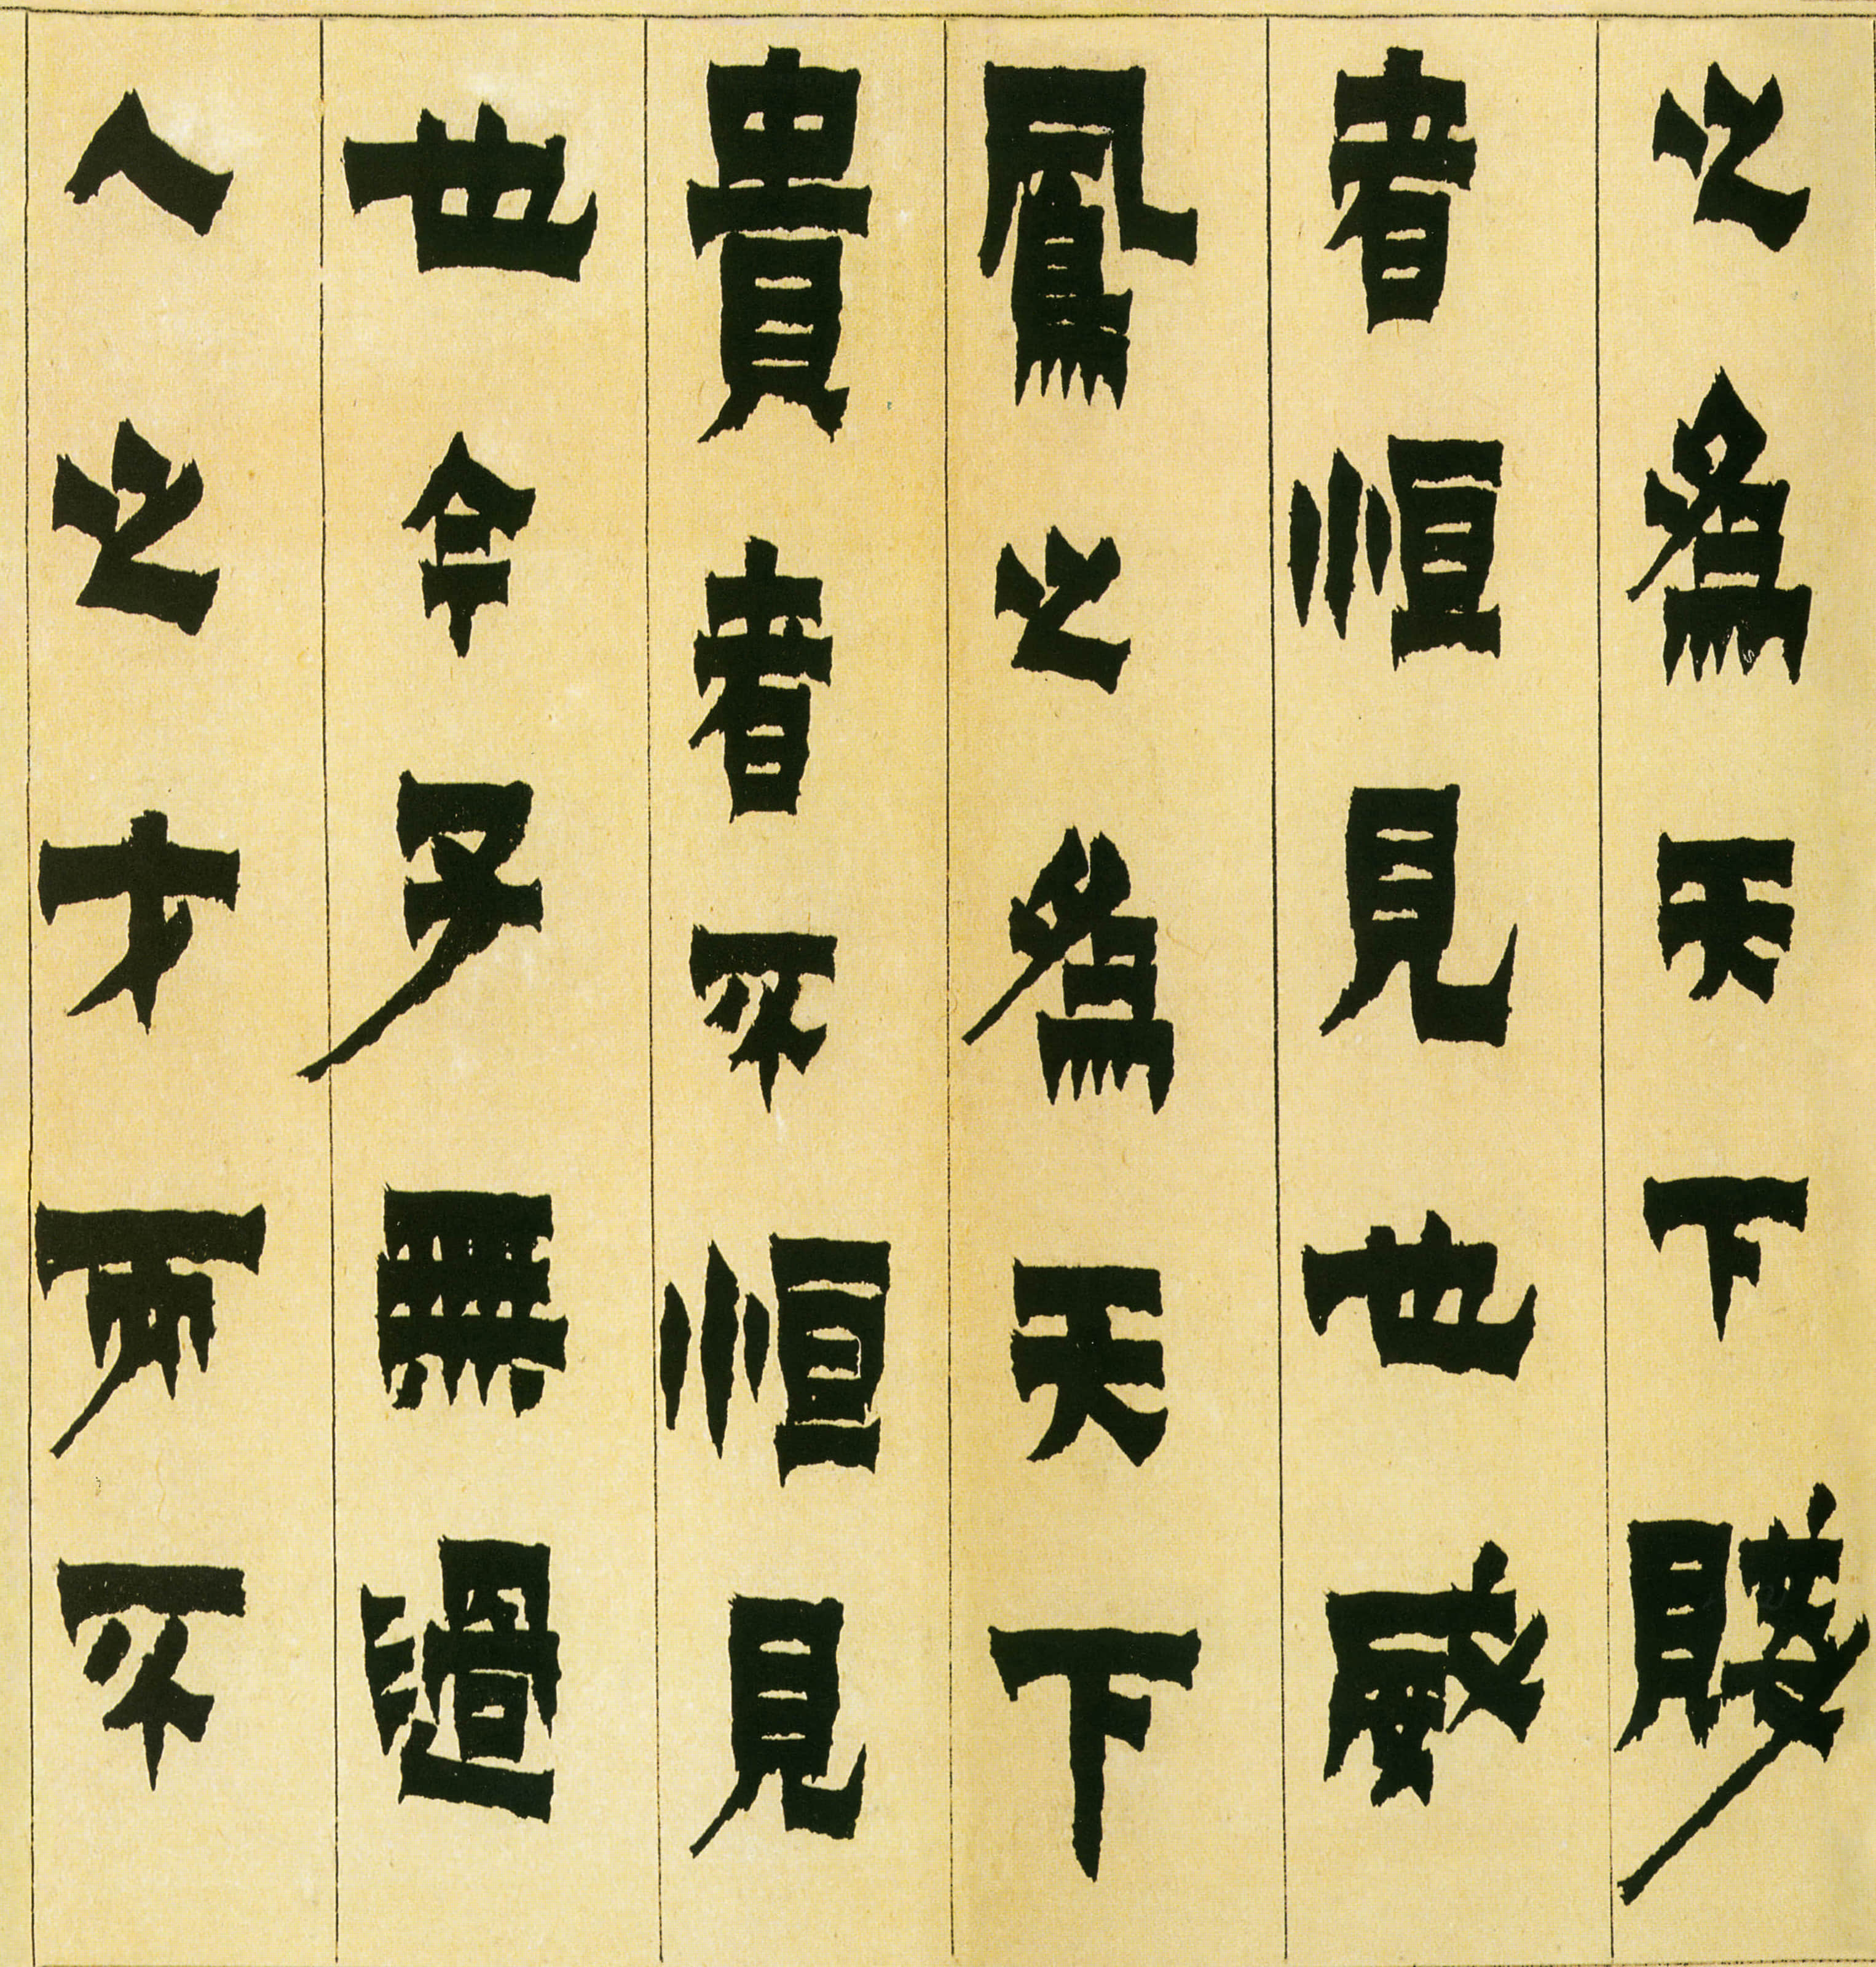 之爲天下賤
者恒見也威
鳳之爲天下
貴者不恒見
也今子無過
人之才而不